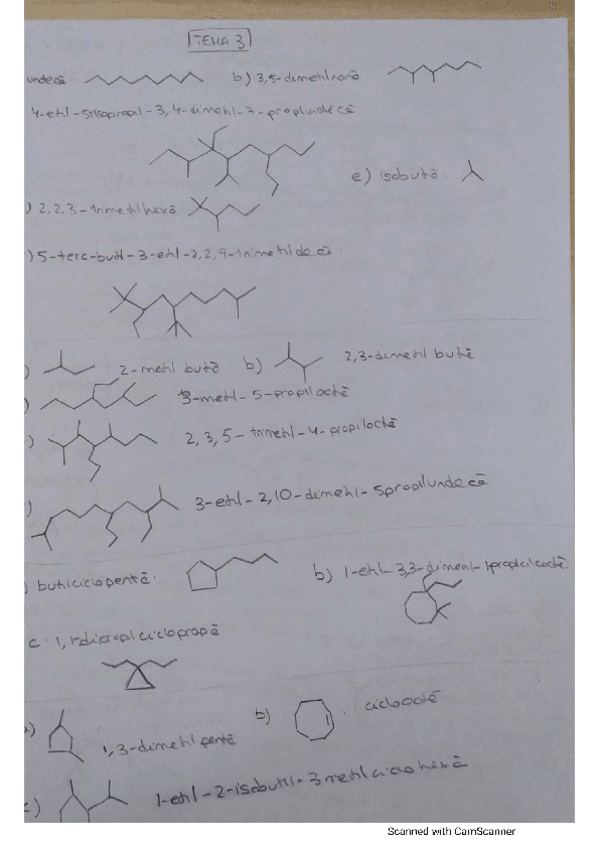 TEMA 3
undecā b) 3,5-dimetilnonā
4-etil-5isopropil-3,4-dimetil-7-propilundecā
e) isobutā
) 2,2,3-trimetilhexā
) 5-terc-butil-3-etil-2,2,9-trimetildecā
) 2-metil butā b) 2,3-dimetil butē
) 3-metil-5-propiloctē
) 2,3,5-trimetil-4-propiloctē
) 3-etil-2,10-dimetil-5propilundecā
) butilciclopentā b) 1-etil-3,3-dimetil-1propilcicloctē
c. 1,1-dipropilciclopropā
a) 1,3-dimetilpentē b) cicloctē
c) 1-etil-2-isobutil-3metilciclohexā
Scanned with CamScanner